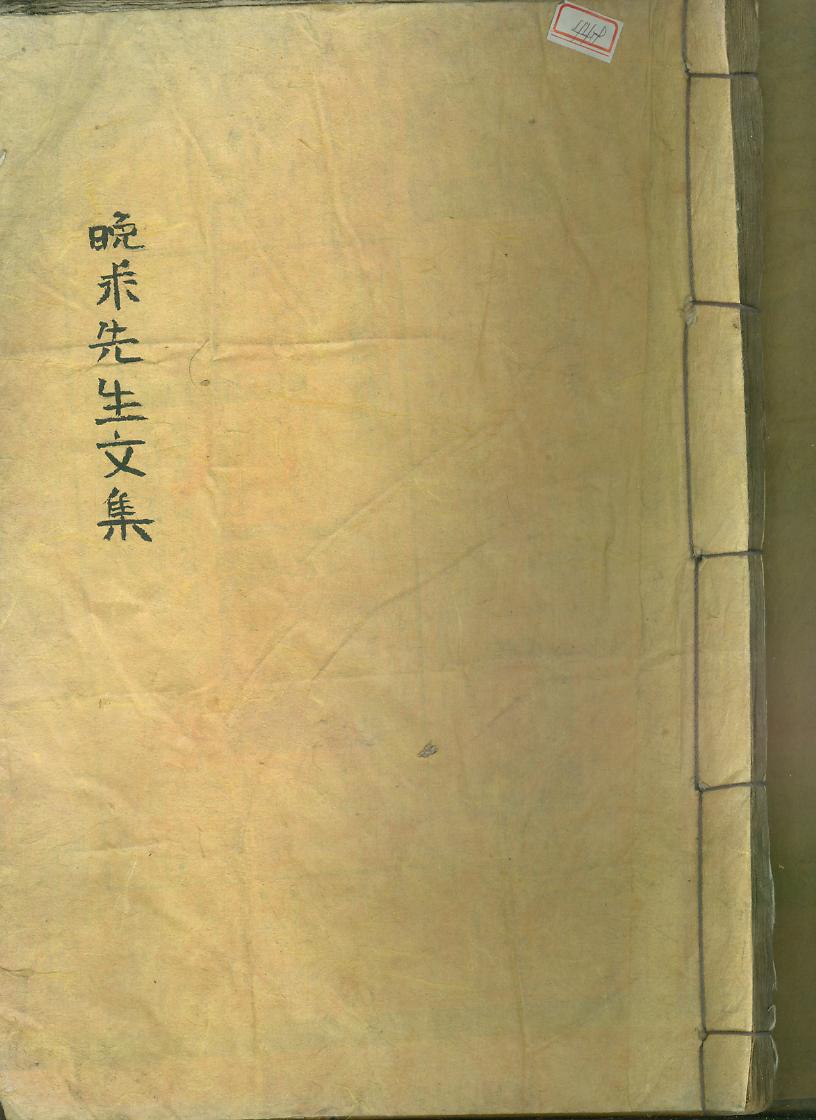 晩求先生文集